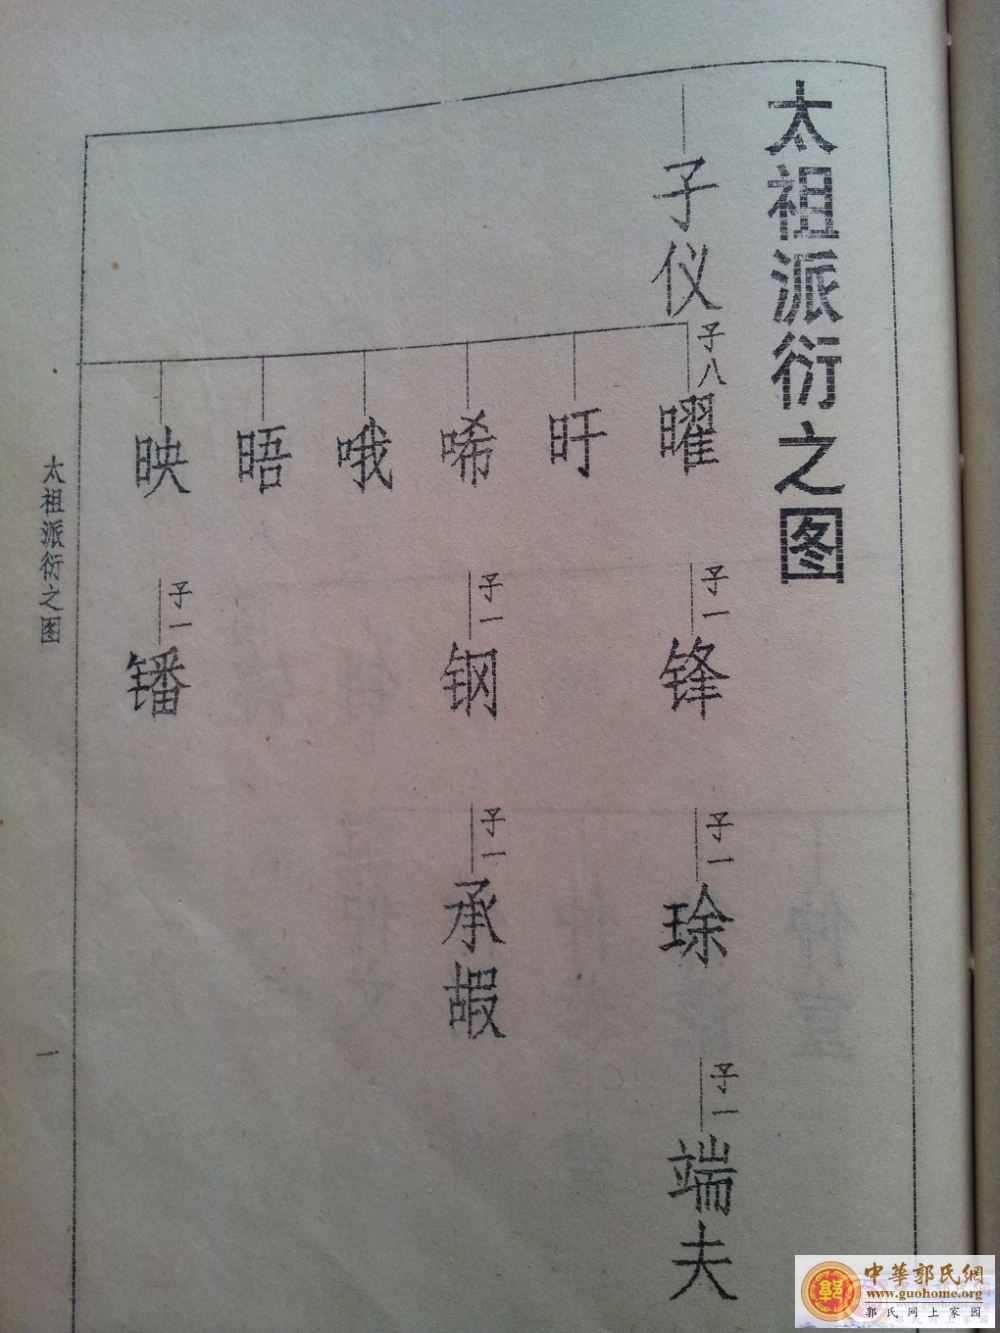 太祖派衍之图
子仪
子八
曜
旴
唏
哦
晤
映
子一
锋
子一
钢
子一
镨
子一
琭
子一
承嘏
子一
端夫
太祖派衍之图
一
中華郭氏網
www.guohome.org
郭氏网上家园
郭